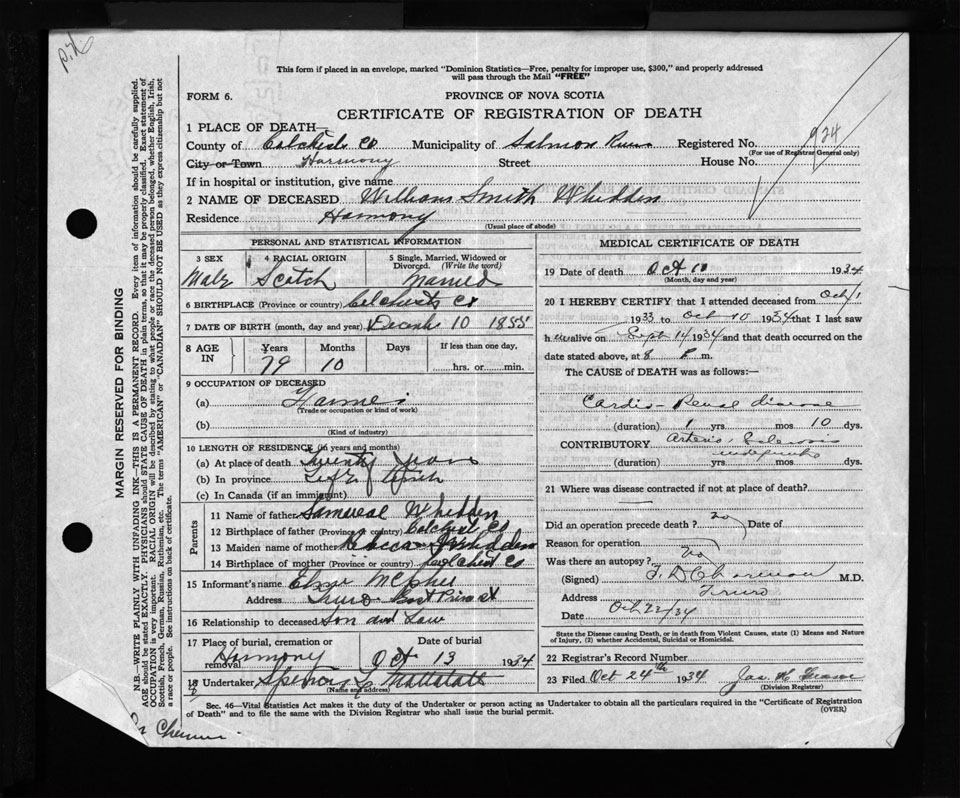 This form if placed in an envelope, marked "Dominion Statistics—Free, penalty for improper use, $300," and properly addressed
will pass through the Mail "FREE"
FORM 6.
PROVINCE OF NOVA SCOTIA
CERTIFICATE OF REGISTRATION OF DEATH
1 PLACE OF DEATH—
County of Colchester Co Municipality of Salmon River Registered No. 924
(For use of Registrar General only)
City or Town Harmony Street House No.
If in hospital or institution, give name
2 NAME OF DECEASED William Smith Whidden
Residence Harmony
(Usual place of abode)
PERSONAL AND STATISTICAL INFORMATION
3 SEX 4 RACIAL ORIGIN 5 Single, Married, Widowed or Divorced. (Write the word)
Male Scotch Married
6 BIRTHPLACE (Province or country) Colchester Co
7 DATE OF BIRTH (month, day and year) 10 1855
8 AGE IN Years Months Days If less than one day,
79 10 hrs. or min.
9 OCCUPATION OF DECEASED
(a) Farmer
(Trade or occupation or kind of work)
(b)
(Kind of industry)
10 LENGTH OF RESIDENCE (in years and months)
(a) At place of death Twenty years
(b) In province Life
(c) In Canada (if an immigrant)
Parents
11 Name of father Whidden
12 Birthplace of father (Province or country) Colchester Co
13 Maiden name of mother Rebecca Whidden
14 Birthplace of mother (Province or country) Colchester Co
15 Informant's name McPhee
Address Truro
16 Relationship to deceased Son in Law
17 Place of burial, cremation or removal Date of burial
Harmony Oct 13 1934
18 Undertaker Spencer
(Name and address)
MEDICAL CERTIFICATE OF DEATH
19 Date of death Oct 10 1934
(Month, day and year)
20 I HEREBY CERTIFY that I attended deceased from Oct 1
1933 to Oct 10 1934 that I last saw
h im alive on Sept 14 1934 and that death occurred on the
date stated above, at 8 P m.
The CAUSE of DEATH was as follows:—
Cardio-Renal disease
(duration) 1 yrs mos 10 dys.
CONTRIBUTORY Arterio Sclerosis
(duration) yrs mos dys.
21 Where was disease contracted if not at place of death?
Did an operation precede death? no Date of
Reason for operation
Was there an autopsy? no
(Signed) M.D.
Address Truro
Date Oct 22/34
State the Disease causing Death, or in death from Violent Causes, state (1) Means and Nature
of Injury, (2) whether Accidental, Suicidal or Homicidal.
22 Registrar's Record Number
23 Filed Oct 24th 1934 Jas.
(Division Registrar)
Sec. 46—Vital Statistics Act makes it the duty of the Undertaker or person acting as Undertaker to obtain all the particulars required in the "Certificate of Registration
of Death" and to file the same with the Division Registrar who shall issue the burial permit.
(OVER)
MARGIN RESERVED FOR BINDING
N.B.—WRITE PLAINLY WITH UNFADING INK—THIS IS A PERMANENT RECORD. Every item of information should be carefully supplied.
AGE should be stated EXACTLY. PHYSICIANS should STATE CAUSE OF DEATH in plain terms, so that it may be properly classified. Exact statement of
OCCUPATION is very important. RACIAL ORIGIN will be described by stating to what people or race the deceased person belonged, whether English, Irish,
Scottish, French, German, Russian, Ruthenian, etc. The terms "AMERICAN" or "CANADIAN" SHOULD NOT BE USED as they express citizenship but not
a race or people. See instructions on back of certificate.